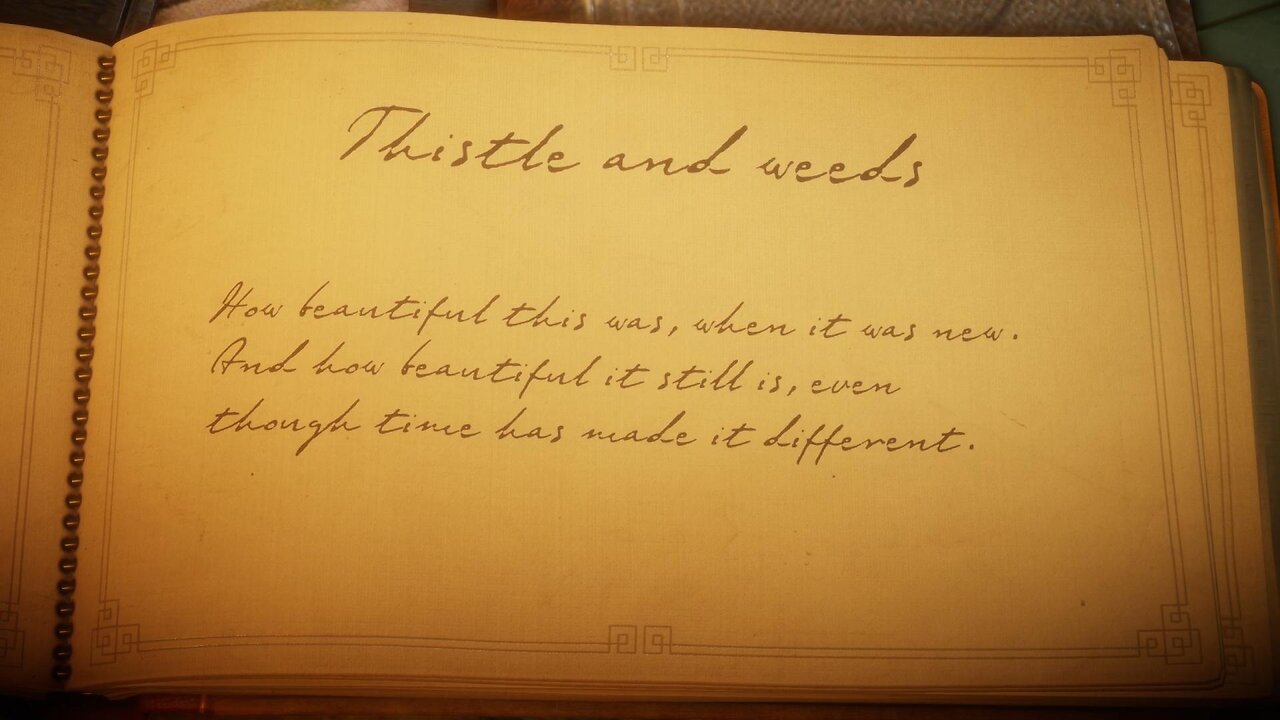 Thistle and weeds
How beautiful this was, when it was new.
And how beautiful it still is, even
though time has made it different.